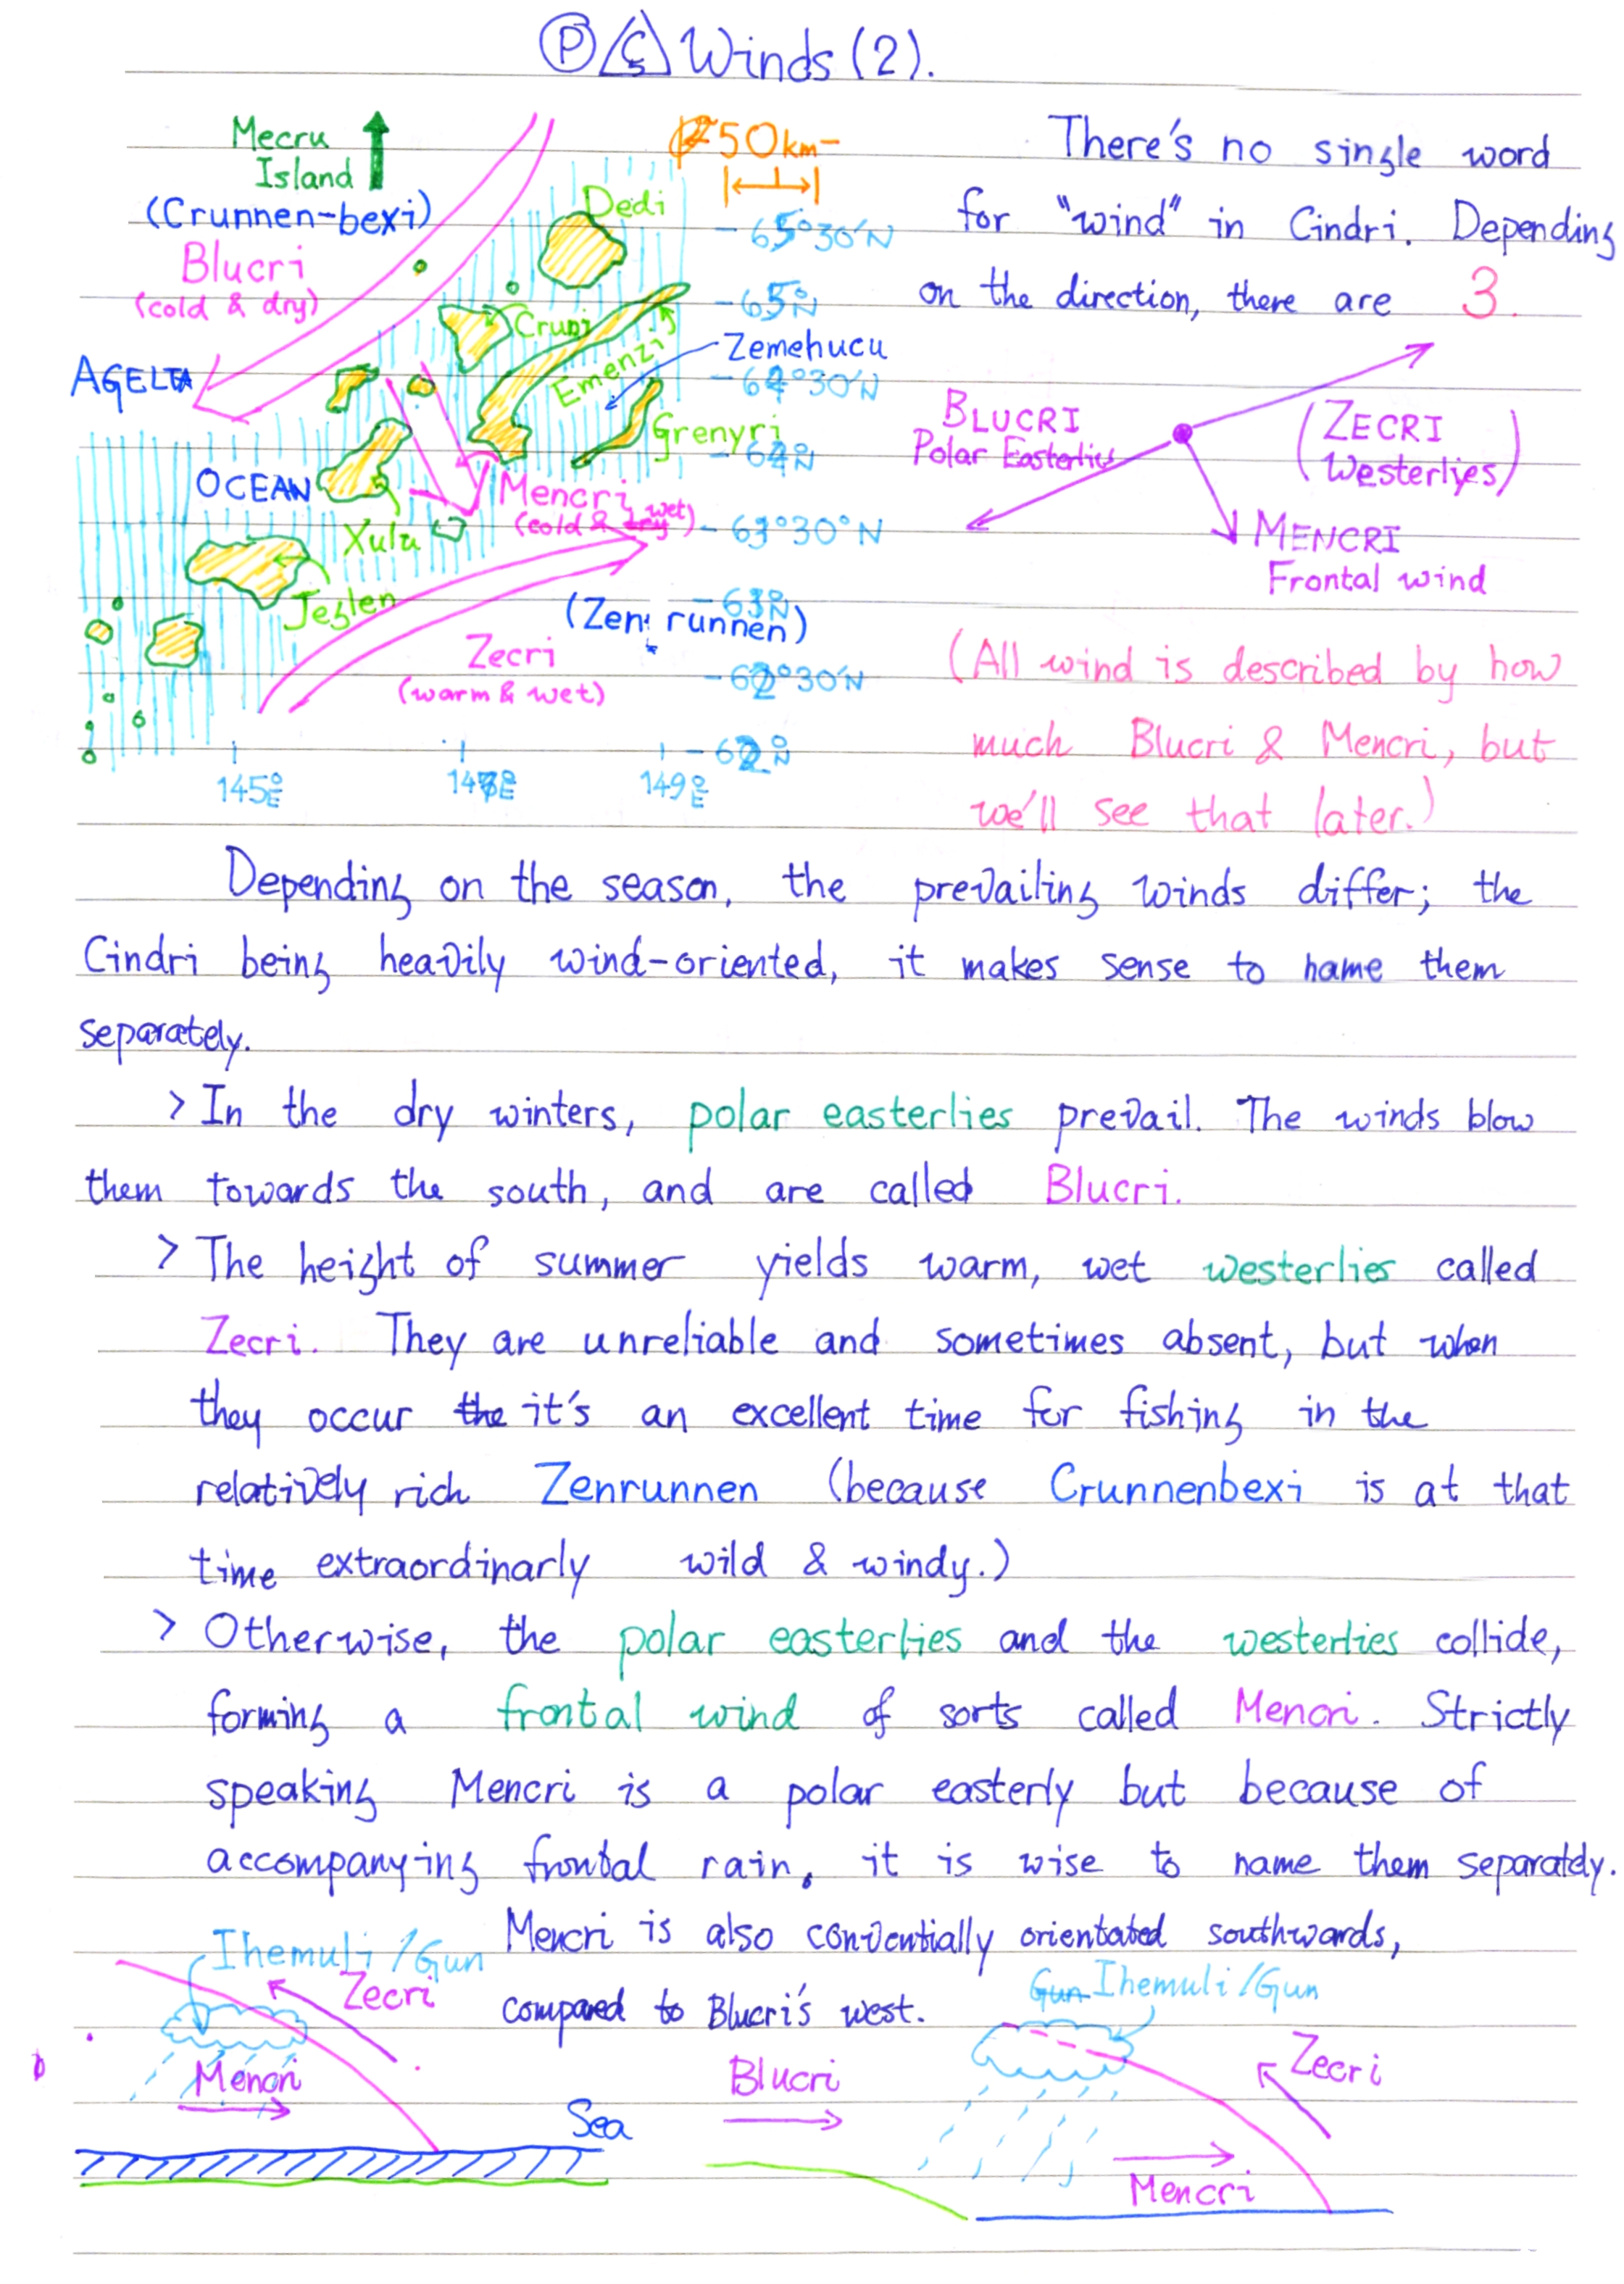 Ⓟ Ç Winds (2).
Mecru
Island
(Crunnen-bexi)
Blucri
(cold & dry)
AGELTA
OCEAN
50km
Dedi
Cruni
Emenzi
Zemehucu
Grenyri
Mencri
(cold & dry wet)
Xulu
Jeglen
Zecri
(warm & wet)
(Zen runnen)
-65°30'N
-65°N
-64°30'N
-64°N
-63°30°N
-63°N
-62°30'N
-62°N
145°E
147°E
149°E
There's no single word
for "wind" in Cindri. Depending
on the direction, there are 3.
BLUCRI
Polar Easterlies
(ZECRI
Westerlies)
MENCRI
Frontal wind
(All wind is described by how
much Blucri & Mencri, but
we'll see that later.)
Depending on the season, the prevailing winds differ; the
Cindri being heavily wind-oriented, it makes sense to name them
separately.
> In the dry winters, polar easterlies prevail. The winds blow
them towards the south, and are called Blucri.
> The height of summer yields warm, wet westerlies called
Zecri. They are unreliable and sometimes absent, but when
they occur the it's an excellent time for fishing in the
relatively rich Zenrunnen (because Crunnenbexi is at that
time extraordinarly wild & windy.)
> Otherwise, the polar easterlies and the westerlies collide,
forming a frontal wind of sorts called Mencri. Strictly
speaking Mencri is a polar easterly but because of
accompanying frontal rain, it is wise to name them separately.
Mencri is also conventially orientated southwards,
compared to Blucri's west.
Ihemuli/Gun
Zecri
Mencri
Sea
Blucri
Gun Ihemuli/Gun
Zecri
Mencri